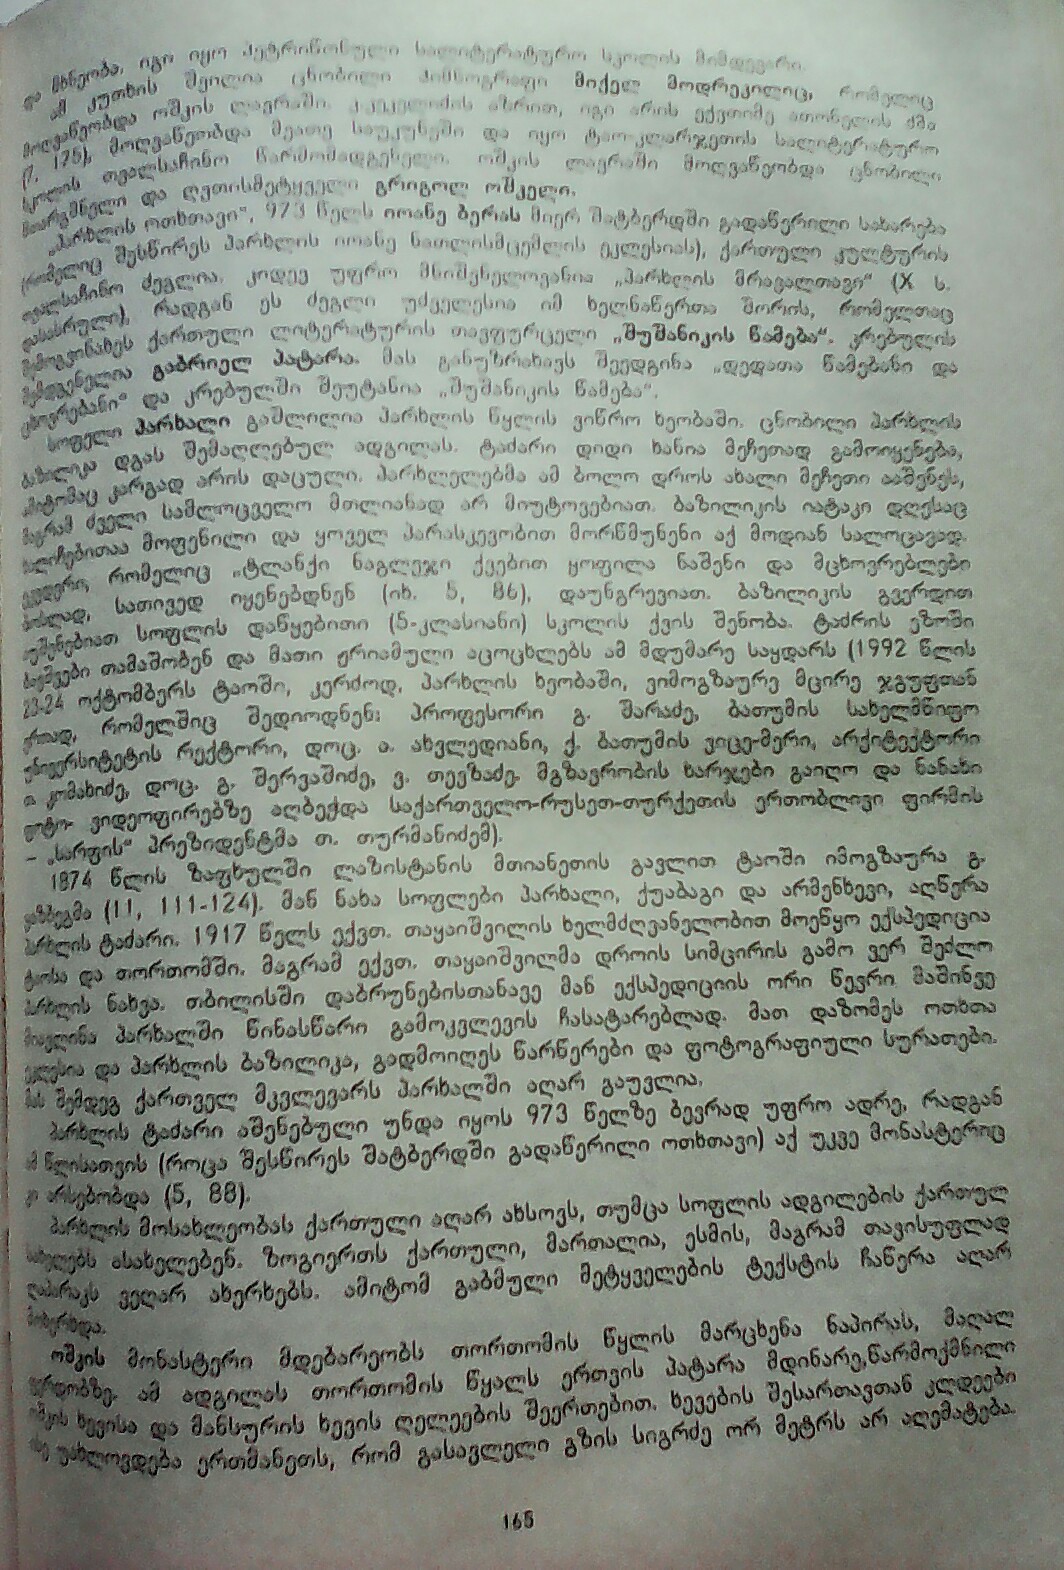 და მხნეობა. იგი იყო პეტრიწონული სალიტერატურო სკოლის მიმდევარი.
ამ კუთხის შვილია ცნობილი ჰიმნოგრაფი მიქელ მოდრეკილიც, რომელიც
მოღვაწეობდა ოშკის ლავრაში. კ.კეკელიძის აზრით, იგი არის ექვთიმე ათონელის ძმა
(7, 175), მოღვაწეობდა მეათე საუკუნეში და იყო ტაო-კლარჯეთის სალიტერატურო
სკოლის თვალსაჩინო წარმომადგენელი. ოშკის ლავრაში მოღვაწეობდა ცნობილი
მთარგმნელი და ღვთისმეტყველი გრიგოლ ოშკელი.
„პარხლის ოთხთავი“, 973 წელს იოანე ბერას მიერ შატბერდში გადაწერილი სახარება
(რომელიც შესწირეს პარხლის იოანე ნათლისმცემლის ეკლესიას), ქართული კულტურის
თვალსაჩინო ძეგლია. კიდევ უფრო მნიშვნელოვანია „პარხლის მრავალთავი“ (X ს.
დასასრული), რადგან ეს ძეგლი უძველესია იმ ხელნაწერთა შორის, რომელთაც
შემოგვინახეს ქართული ლიტერატურის თავფურცელი „შუშანიკის წამება“. კრებულის
შემდგენელია გაბრიელ პატარა. მას განუზრახავს შეედგინა „დედათა წამებანი და
ცხოვრებანი“ და კრებულში შეუტანია „შუშანიკის წამება“.
სოფელი პარხალი გაშლილია პარხლის წყლის ვიწრო ხეობაში. ცნობილი პარხლის
ბაზილიკა დგას შემაღლებულ ადგილას. ტაძარი დიდი ხანია მეჩეთად გამოიყენება,
ამიტომაც კარგად არის დაცული. პარხლელებმა ამ ბოლო დროს ახალი მეჩეთი ააშენეს,
მაგრამ ძველი სამლოცველო მთლიანად არ მიუტოვებიათ. ბაზილიკის იატაკი დღესაც
ხალიჩებითაა მოფენილი და ყოველ პარასკევობით მორწმუნენი აქ მოდიან სალოცავად.
რომელიც „ტლანქი ნაგლეჯი ქვებით ყოფილა ნაშენი და მცხოვრებლები
სათივედ იყენებდნენ (იხ. 5, 86), დაუნგრევიათ. ბაზილიკის გვერდით
აუშენებიათ სოფლის დაწყებითი (5-კლასიანი) სკოლის ქვის შენობა. ტაძრის ეზოში
ბავშვები თამაშობენ და მათი ჟრიამული აცოცხლებს ამ მდუმარე საყდარს (1992 წლის
23-24 ოქტომბერს ტაოში, კერძოდ, პარხლის ხეობაში, ვიმოგზაურე მცირე ჯგუფთან
ერთად, რომელშიც შედიოდნენ: პროფესორი გ. შარაძე, ბათუმის სახელმწიფო
უნივერსიტეტის რექტორი, დოც. ა. ახვლედიანი, ქ. ბათუმის ვიცე-მერი, არქიტექტორი
კომახიძე, დოც. გ. შერვაშიძე, ვ. თევზაძე. მგზავრობის ხარჯები გაიღო და ნანახი
ფოტო- ვიდეოფირებზე აღბეჭდა საქართველო-რუსეთ-თურქეთის ერთობლივი ფირმის
– „სარფის“ პრეზიდენტმა თ. თურმანიძემ).
1874 წლის ზაფხულში ლაზისტანის მთიანეთის გავლით ტაოში იმოგზაურა გ.
ყაზბეგმა (11, 111-124). მან ნახა სოფლები პარხალი, ქუაბაგი და არმენხევი, აღწერა
პარხლის ტაძარი. 1917 წელს ექვთ. თაყაიშვილის ხელმძღვანელობით მოეწყო ექსპედიცია
ტაოსა და თორთომში. მაგრამ ექვთ. თაყაიშვილმა დროის სიმცირის გამო ვერ შეძლო
პარხლის ნახვა. თბილისში დაბრუნებისთანავე მან ექსპედიციის ორი წევრი მაშინვე
მიავლინა პარხალში წინასწარი გამოკვლევის ჩასატარებლად. მათ დაზომეს ოთხთა
ეკლესია და პარხლის ბაზილიკა, გადმოიღეს წარწერები და ფოტოგრაფიული სურათები.
მას შემდეგ ქართველ მკვლევარს პარხალში აღარ გაუვლია.
პარხლის ტაძარი აშენებული უნდა იყოს 973 წელზე ბევრად უფრო ადრე, რადგან
ამ წლისათვის (როცა შესწირეს შატბერდში გადაწერილი ოთხთავი) აქ უკვე მონასტერიც
კი არსებობდა (5, 88).
პარხლის მოსახლეობას ქართული აღარ ახსოვს, თუმცა სოფლის ადგილების ქართულ
სახელებს ასახელებენ. ზოგიერთს ქართული, მართალია, ესმის, მაგრამ თავისუფლად
ლაპარაკს ვეღარ ახერხებს. ამიტომ გაბმული მეტყველების ტექსტის ჩაწერა აღარ
მოხერხდა.
ოშკის მონასტერი მდებარეობს თორთომის წყლის მარცხენა ნაპირას, მაღალ
ფერდობზე. ამ ადგილას თორთომის წყალს ერთვის პატარა მდინარე,წარმოქმნილი
ოშკის ხევისა და მანსურის ხევის ღელეების შეერთებით. ხევების შესართავთან კლდეები
ისე უახლოვდება ერთმანეთს, რომ გასავლელი გზის სიგრძე ორ მეტრს არ აღემატება.
165